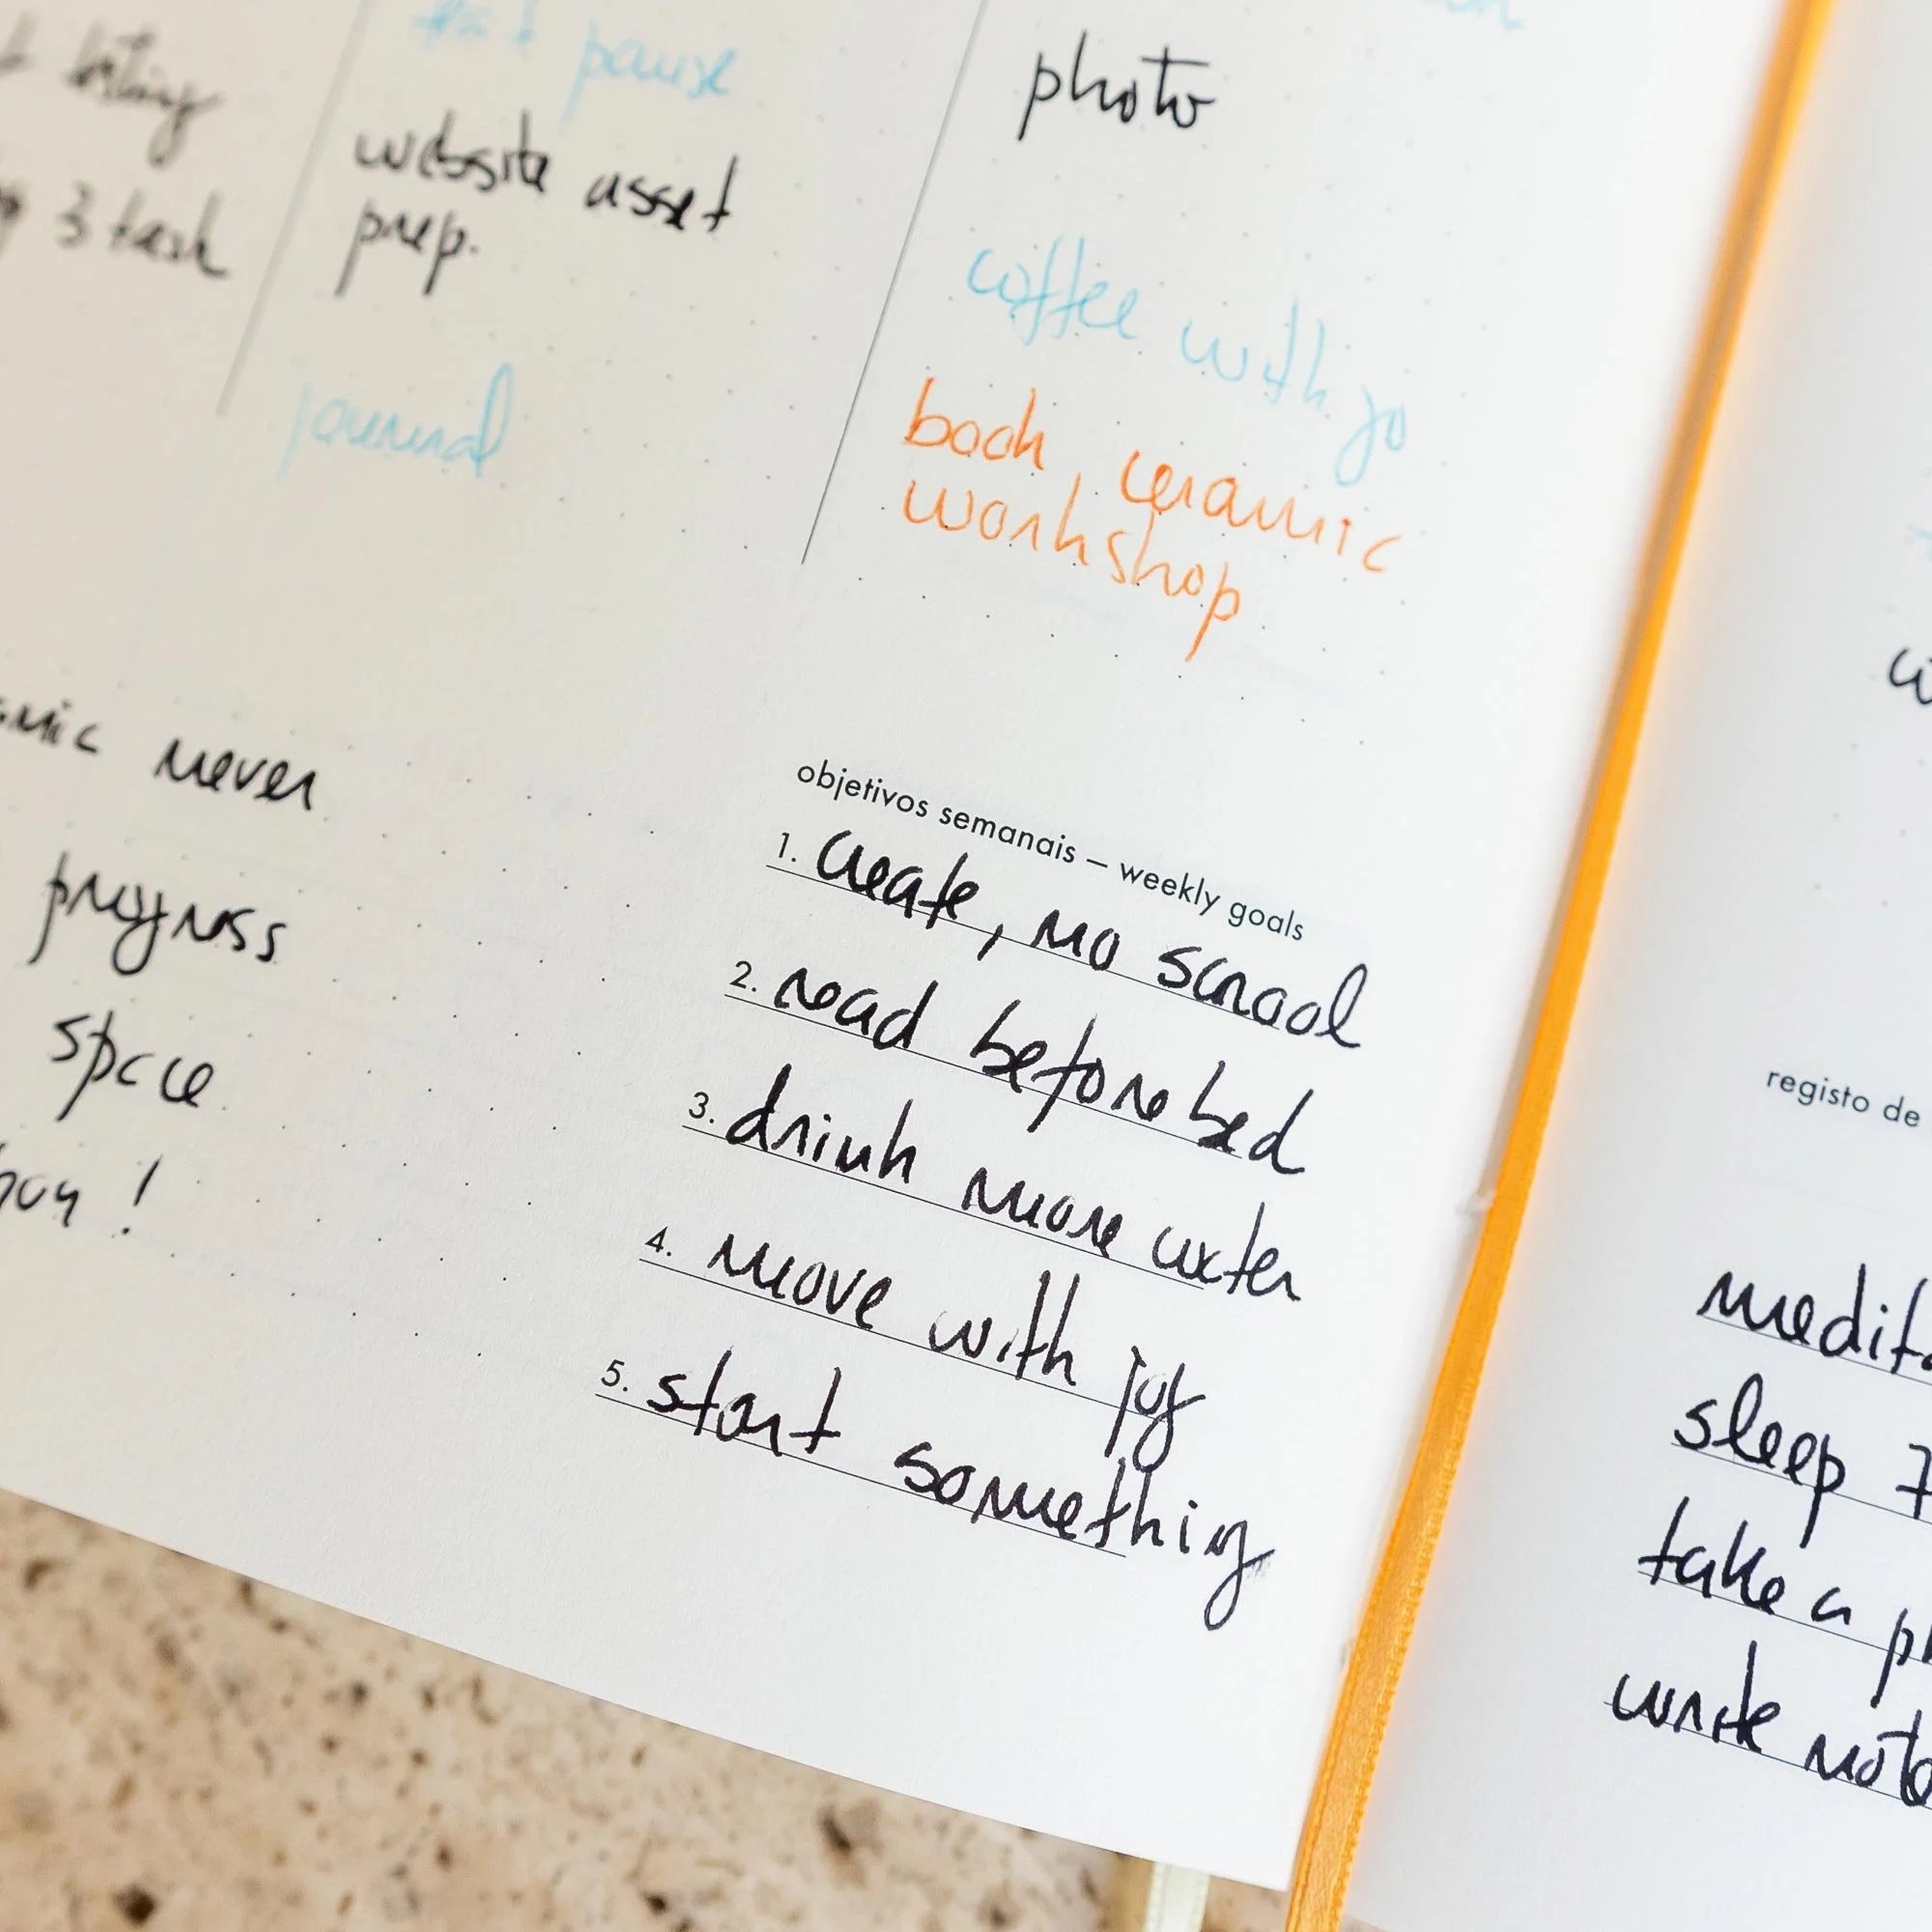 listing
3 task
pause
website asset
prep.
journal
photo
coffee with jo
book ceramic
workshop
never
progress
space
!
objetivos semanais – weekly goals
1. create, no scrool
2. read before bed
3. drink more water
4. move with joy
5. start something
registo de
sleep 7
take a
write